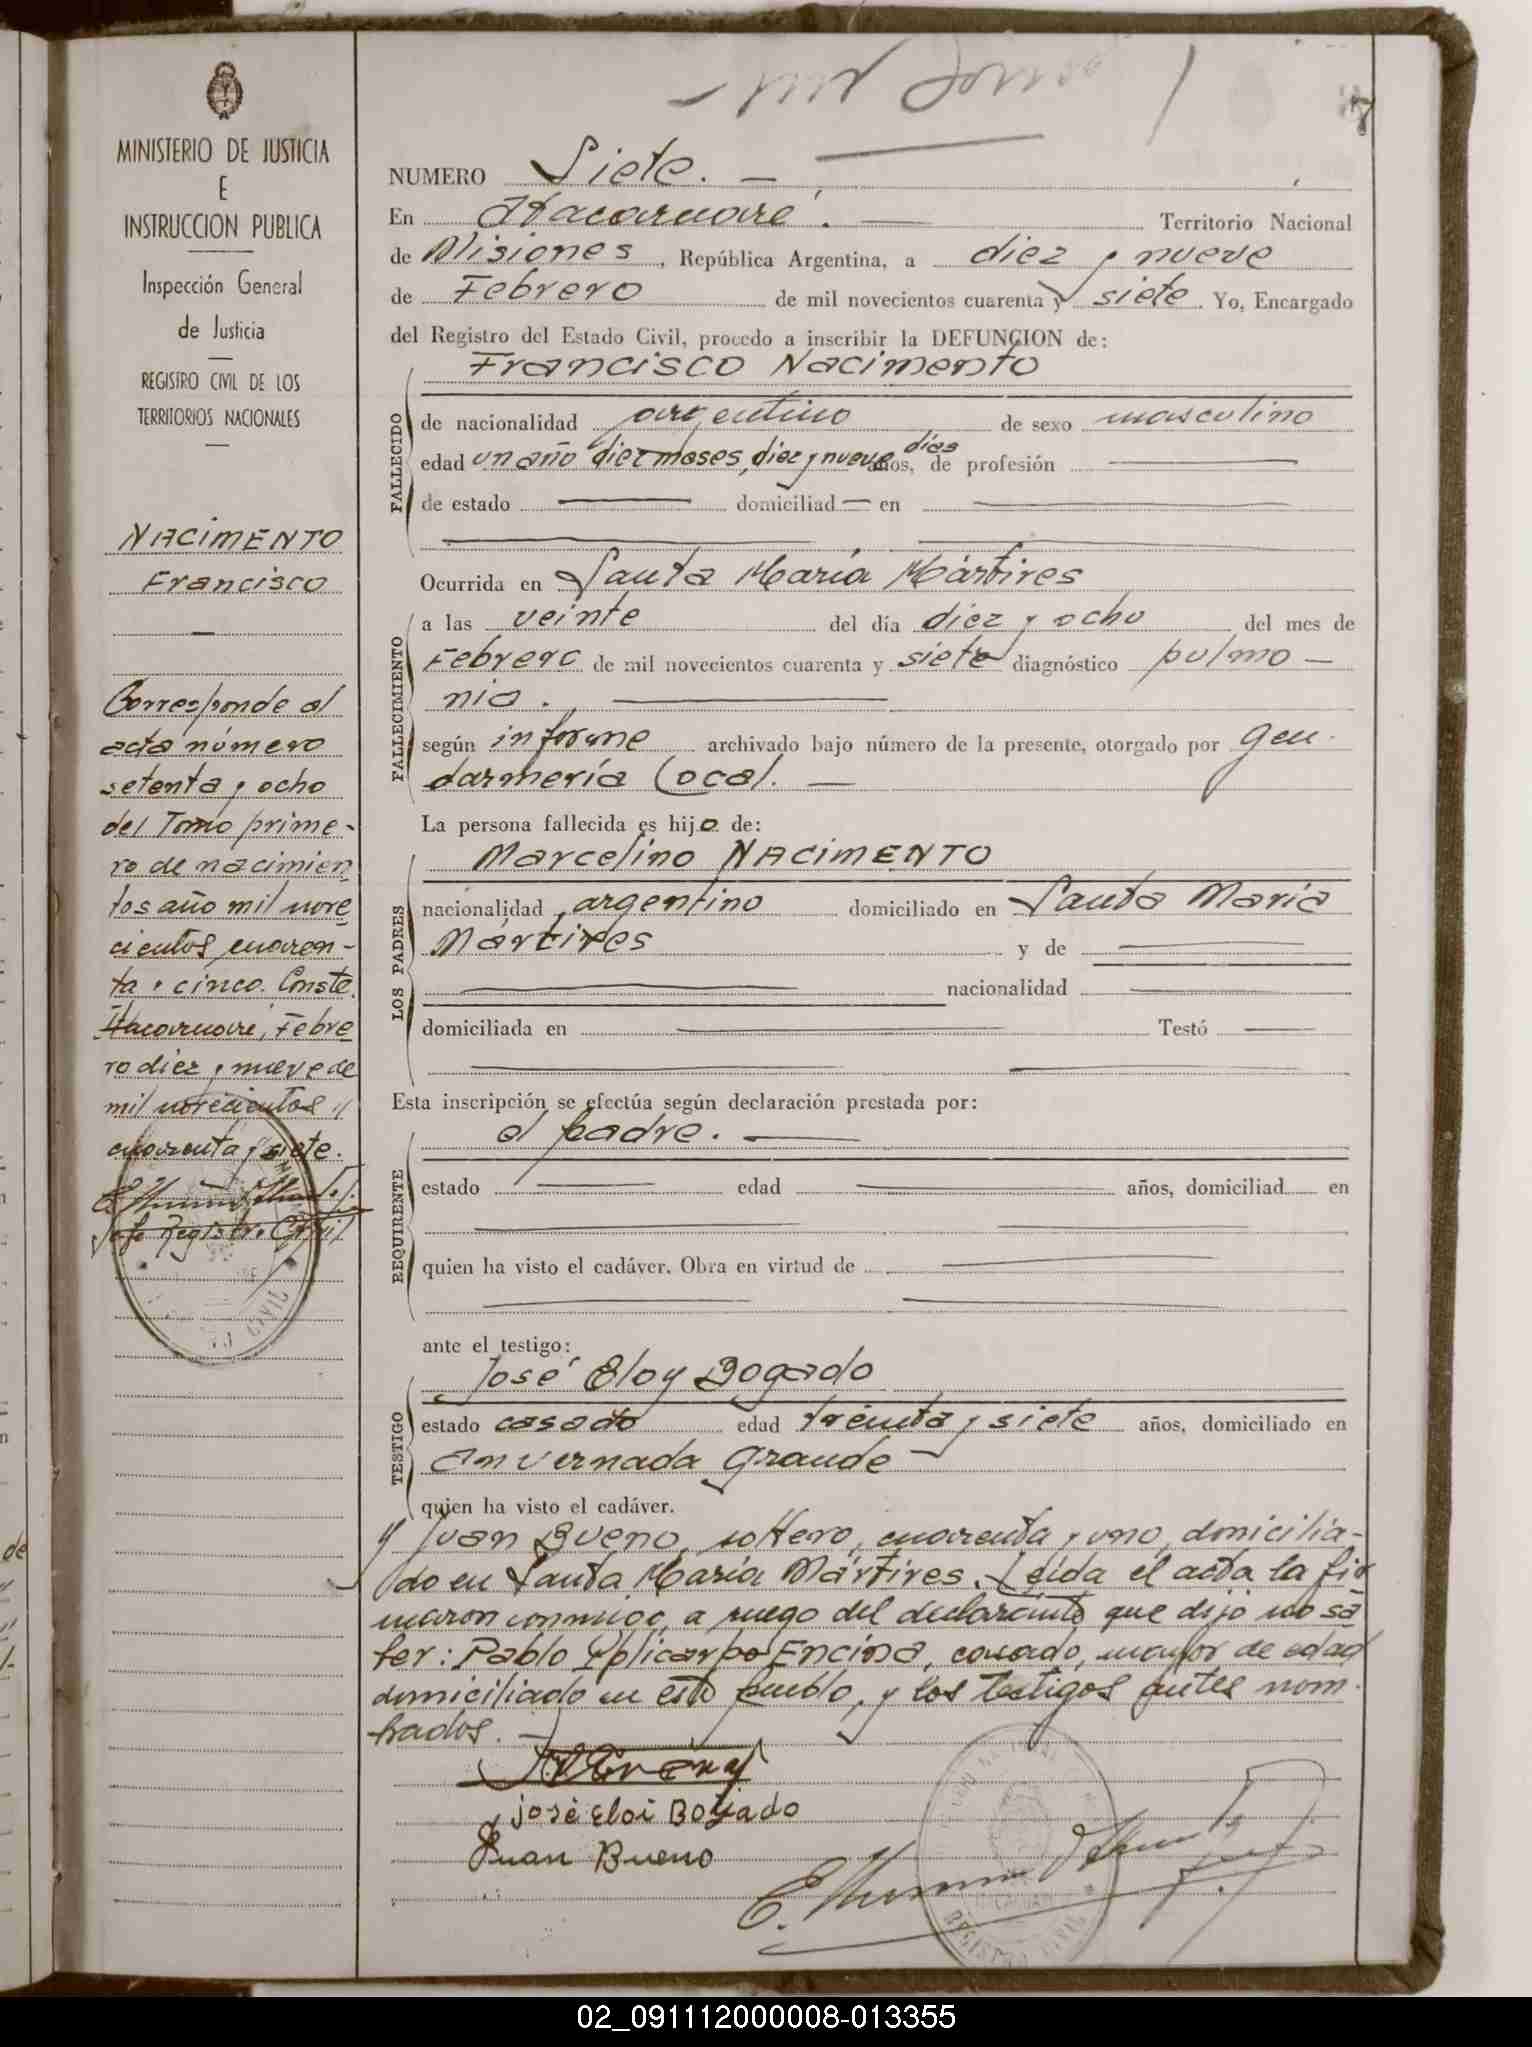 7
MINISTERIO DE JUSTICIA
E
INSTRUCCION PUBLICA
Inspección General
de Justicia
REGISTRO CIVIL DE LOS
TERRITORIOS NACIONALES
NACIMENTO
Francisco
Corresponde al
acta número
setenta y ocho
del Tomo prime-
ro de nacimien
tos año mil nove
cientos cuaren-
ta y cinco. Conste.
Itacaruaré, Febre
ro diez y nueve de
mil novecientos
cuarenta y siete.
Jefe Registro Civil
NUMERO Siete. —
En Itacaruaré. — Territorio Nacional
de Misiones, República Argentina, a diez y nueve
de Febrero de mil novecientos cuarenta y siete. Yo, Encargado
del Registro del Estado Civil, procedo a inscribir la DEFUNCION de:
FALLECIDO
Francisco Nacimento
de nacionalidad argentino de sexo masculino
edad un año diez meses, diez y nueve días años, de profesión —
de estado — domiciliad — en —
FALLECIMIENTO
Ocurrida en Santa María Mártires
a las veinte del día diez y ocho del mes de
Febrero de mil novecientos cuarenta y siete diagnóstico pulmo-
nia. —
según informe archivado bajo número de la presente, otorgado por Gen-
darmería Local. —
La persona fallecida es hijo de:
LOS PADRES
Marcelino NACIMENTO
nacionalidad argentino domiciliado en Santa María
Mártires y de —
— nacionalidad —
domiciliada en — Testó —
Esta inscripción se efectúa según declaración prestada por:
REQUIRENTE
el padre. —
estado — edad — años, domiciliad en
quien ha visto el cadáver. Obra en virtud de —
ante el testigo:
TESTIGO
José Eloy Bogado
estado casado edad treinta y siete años, domiciliado en
Invernada Grande
quien ha visto el cadáver.
y Juan Bueno, soltero, cuarenta y uno, domicilia-
do en Santa María Mártires. Leída el acta la fir
maron conmigo, a ruego del declarante que dijo no sa
ber: Pablo Policarpo Encina, casado, mayor de edad
domiciliado en este pueblo, y los testigos antes nom-
brados. —
José Eloi Bogado
Juan Bueno
REGISTRO CIVIL
02_091112000008-013355